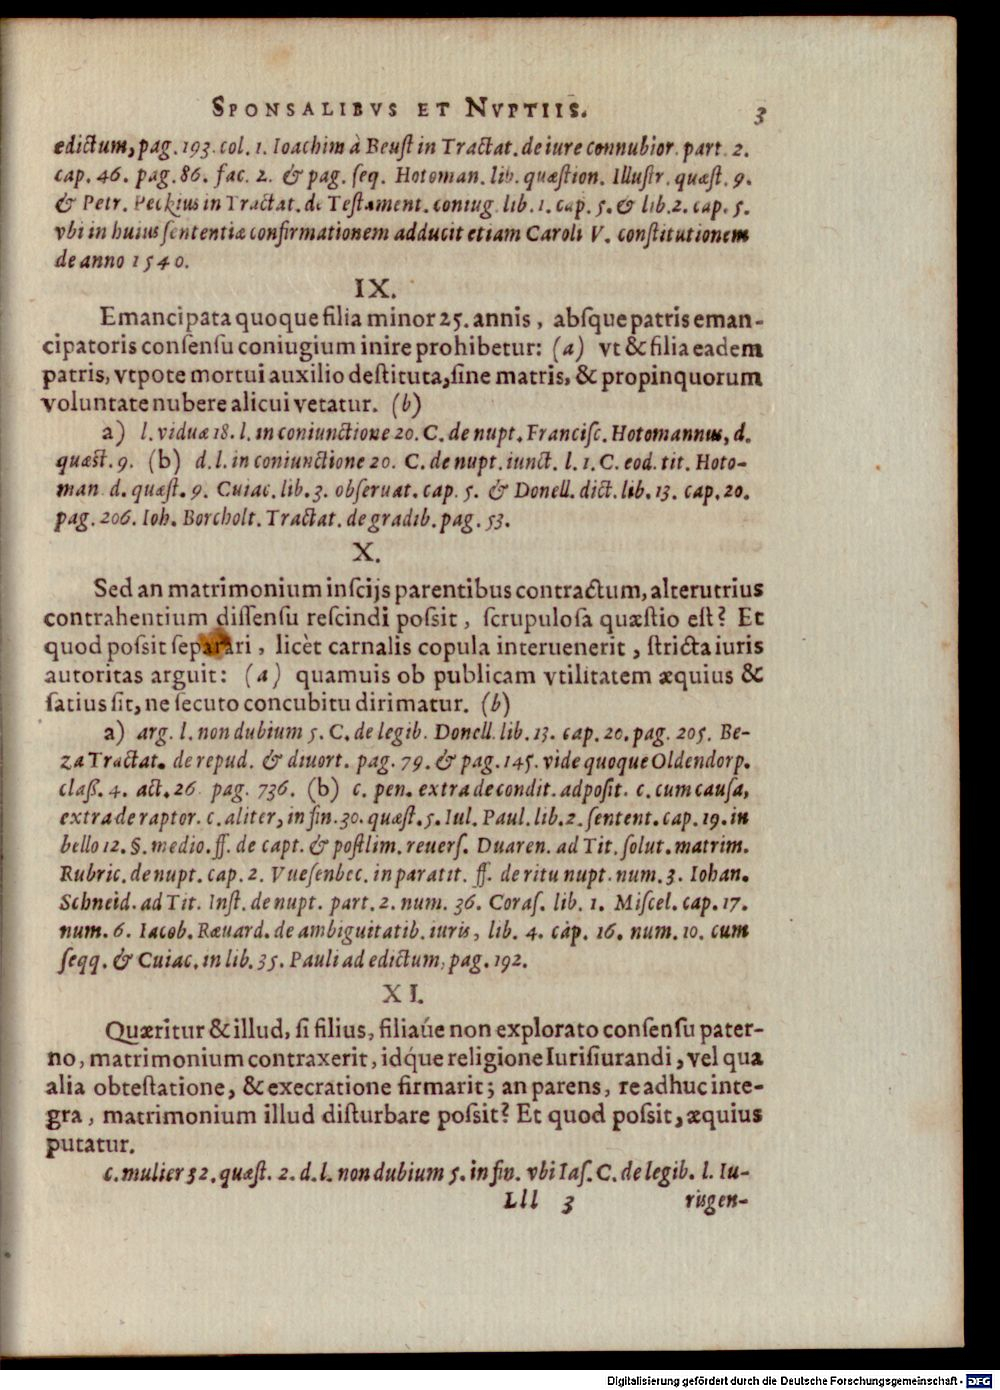 SPONSALIBVS ET NVPTIIS. 3
edictum, pag. 193. col. 1. Ioachim à Beuſt in Tractat. de iure connubior. part. 2.
cap. 46. pag. 86. fac. 2. & pag. ſeq. Hotoman. lib. quæſtion. Illuſtr. quæſt. 9.
& Petr. Peckius in Tractat. de Teſtament. coniug. lib. 1. cap. 5. & lib. 2. cap. 5.
vbi in huius ſententiæ confirmationem adducit etiam Caroli V. conſtitutionem
de anno 1540.
IX.
Emancipata quoque filia minor 25. annis, abſque patris eman-
cipatoris conſenſu coniugium inire prohibetur: (a) vt & filia eadem
patris, vtpote mortui auxilio deſtituta, ſine matris, & propinquorum
voluntate nubere alicui vetatur. (b)
a) l. viduæ 18. l. in coniunctione 20. C. de nupt. Franciſc. Hotomannus, d.
quæſt. 9. (b) d. l. in coniunctione 20. C. de nupt. iunct. l. 1. C. eod. tit. Hoto-
man. d. quæſt. 9. Cuiac. lib. 3. obſeruat. cap. 5. & Donell. dict. lib. 13. cap. 20.
pag. 206. Ioh. Borcholt. Tractat. de gradib. pag. 53.
X.
Sed an matrimonium inſcijs parentibus contractum, alterutrius
contrahentium diſſenſu reſcindi poſsit, ſcrupuloſa quæſtio eſt? Et
quod poſsit separari, licèt carnalis copula interuenerit, ſtricta iuris
autoritas arguit: (a) quamuis ob publicam vtilitatem æquius &
ſatius ſit, ne ſecuto concubitu dirimatur. (b)
a) arg. l. non dubium 5. C. de legib. Donell. lib. 13. cap. 20. pag. 205. Be-
za Tractat. de repud. & diuort. pag. 79. & pag. 145. vide quoque Oldendorp.
claſſ. 4. act. 26. pag. 736. (b) c. pen. extra de condit. adpoſit. c. cum cauſa,
extra de raptor. c. aliter, in fin. 30. quæſt. 5. Iul. Paul. lib. 2. ſentent. cap. 19. in
bello 12. §. medio. ff. de capt. & poſtlim. reuerſ. Duaren. ad Tit. ſolut. matrim.
Rubric. de nupt. cap. 2. Vueſenbec. in paratit. ff. de ritu nupt. num. 3. Iohan.
Schneid. ad Tit. Inſt. de nupt. part. 2. num. 36. Coraſ. lib. 1. Miſcel. cap. 17.
num. 6. Iacob. Ræuard. de ambiguitatib. iuris, lib. 4. càp. 16. num. 10. cum
ſeqq. & Cuiac. in lib. 35. Pauli ad edictum, pag. 192.
XI.
Quæritur & illud, ſi filius, filiaúe non explorato conſenſu pater-
no, matrimonium contraxerit, idq́ue religione Iuriſiurandi, vel qua
alia obteſtatione, & execratione firmarit; an parens, re adhuc inte-
gra, matrimonium illud diſturbare poſsit? Et quod poſsit, æquius
putatur.
c. mulier 32. quæſt. 2. d. l. non dubium 5. in fin. vbi Iaſ. C. de legib. l. Iu-
Lll 3 risgen-
Digitalisierung gefördert durch die Deutsche Forschungsgemeinschaft - DFG